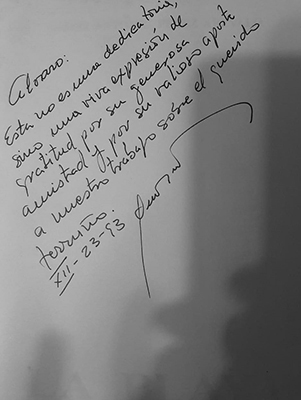 Alvaro:
Esta no es una dedicatoria,
sino una viva expresión de
gratitud por su generosa
amistad y por su valioso aporte
a nuestro trabajo sobre el querido
terruño.
XII-23-93